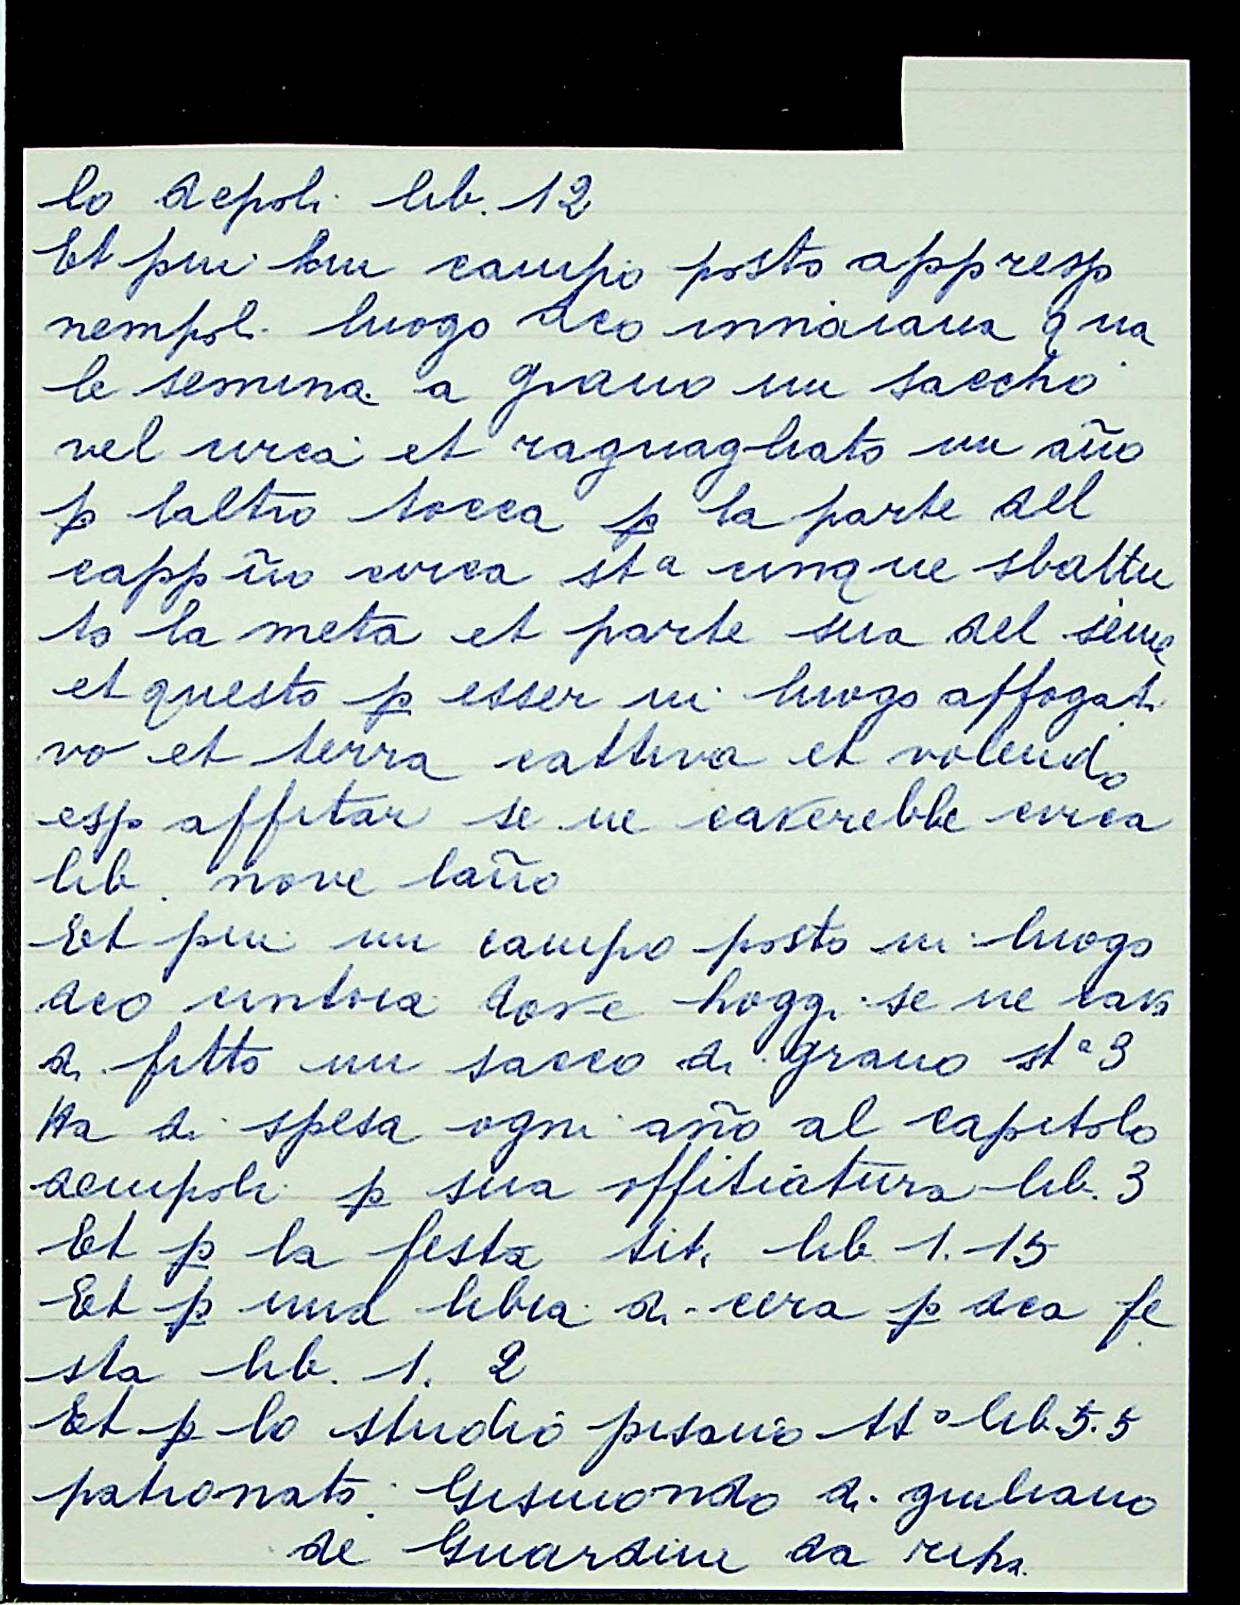 lo depoli lib. 12
Et piu hun campo posto appresp
nempoli luogo dco innaiana qua
le semina a grano un saccho
vel circa et raguagliato un año
p laltro tocca p la parte del
capp ño circa sta cinque sbattu
to la meta et parte sua del seme
et questo p esser in luogo affogati
vo et terra cattiva et volendo
esp affitar se ne caverebbe circa
lib. nove laño
Et piu un campo posto in luogo
dco cintoia dove hoggi se ne cava
di fitto un sacco di grano sta 3
Ha di spesa ogni año al capitolo
dempoli p sua offitiatura lib. 3
Et p la festa tit. lib 1. 15
Et p una libia di cera p dca fe
sta lib. 1. 2
Et p lo studio pisano tto lib. 5. 5
patronato. Gismondo di giuliano
de Guardini da